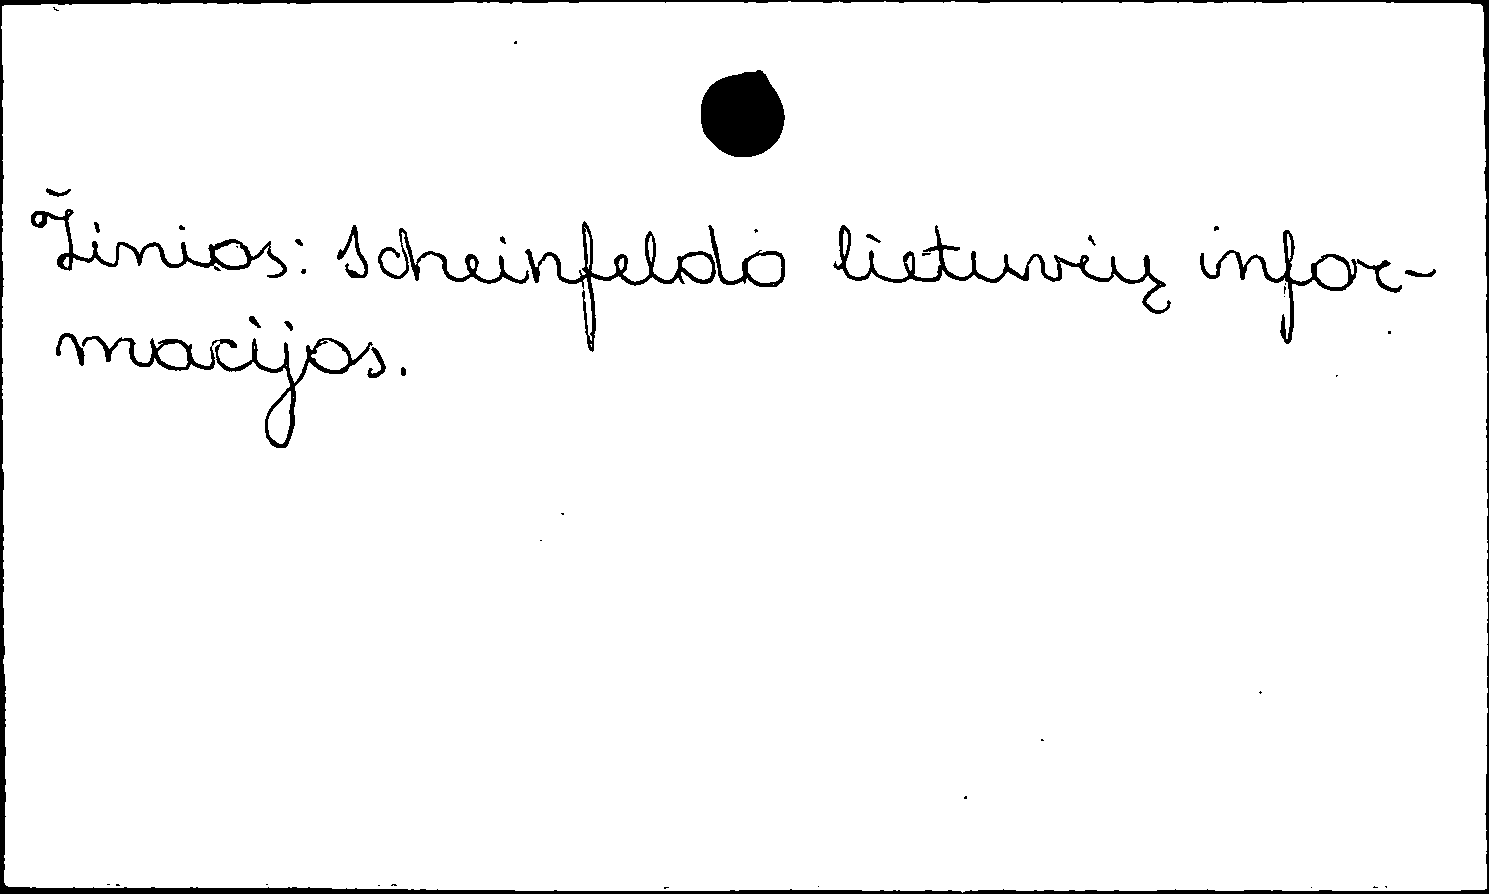 Žinios: Scheinfeldo lietuvių infor-
macijos.